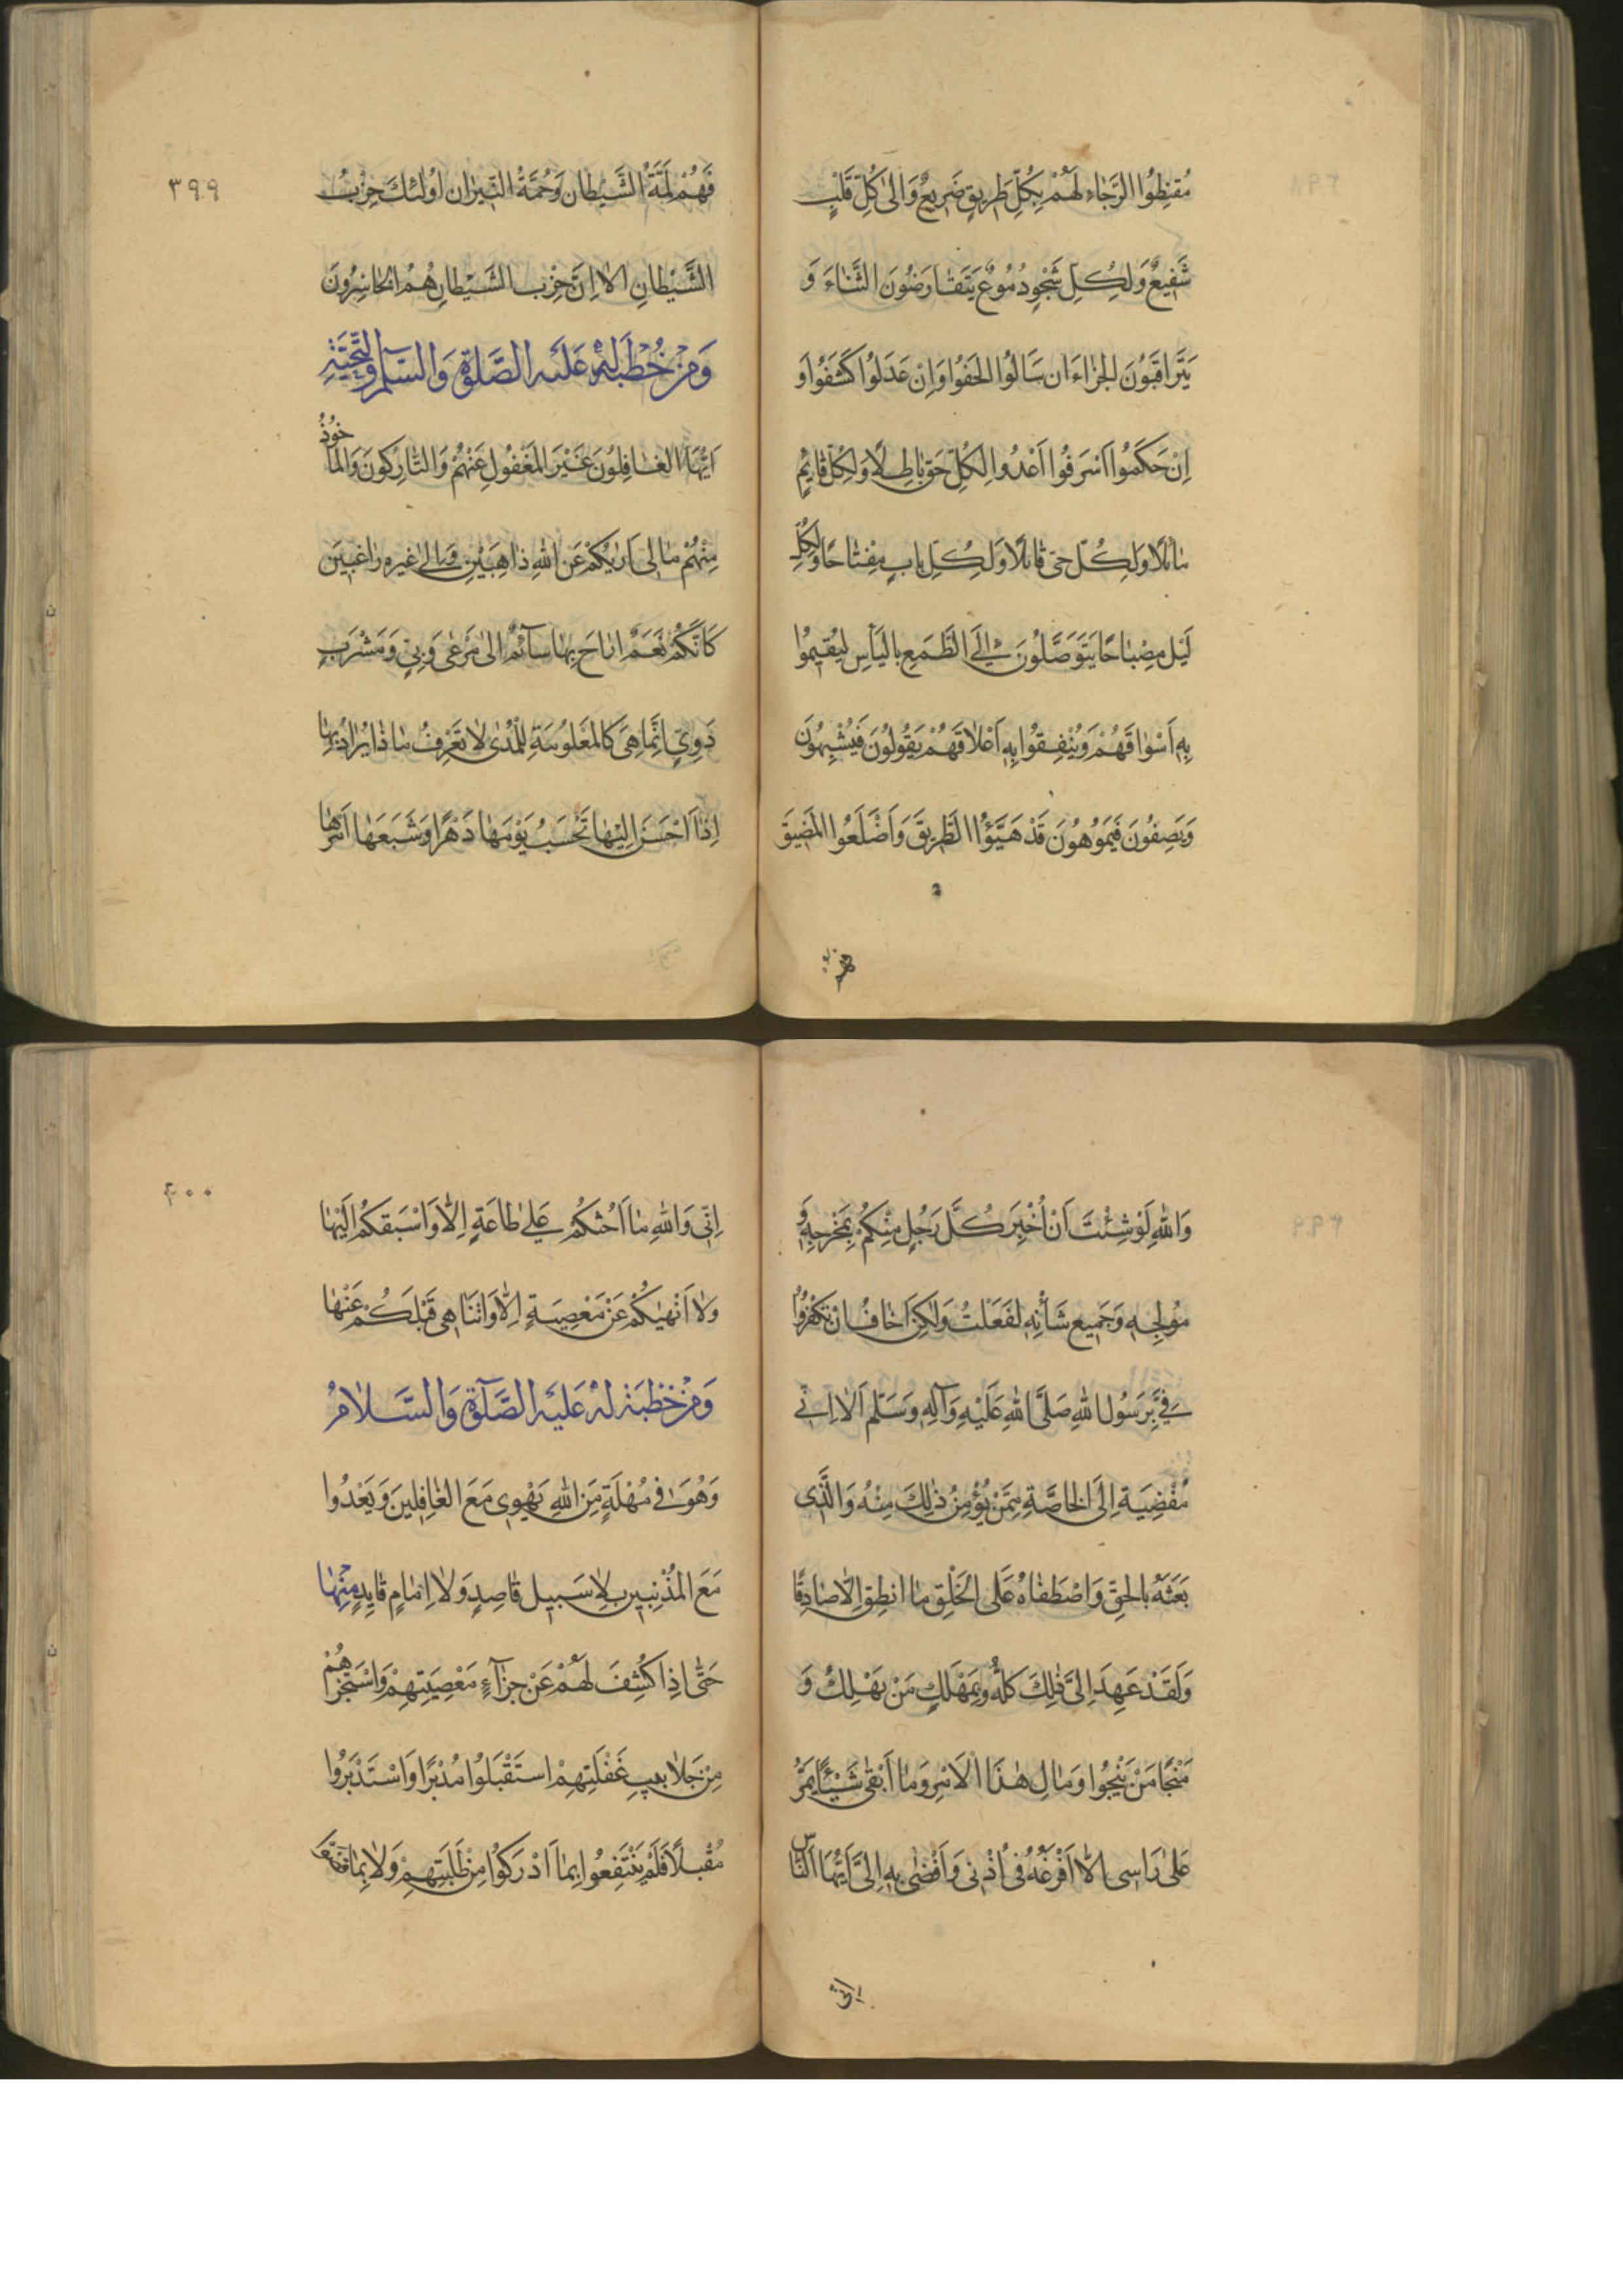 مُقنِطُوا الرَّجَاءِ لَهُمْ بِكُلِّ طَرِيقٍ ضَرِيعٌ وَالىٰ كُلِّ قَلْبٍ
شَفِيعٌ وَلِكُلِّ شَجْوٍ دُمُوعٌ يَتَقَارَضُونَ الثَّنَاءَ وَ
يَتَرَاقَبُونَ الجَزَاءَ ان سَالُوا الحَفُوا وَاِنْ عَدَلُوا كَشَفُوا وَ
اِنْ حَكَمُوا اَسْرَفُوا اَعْدُوا لِكُلِّ حَقٍّ بَاطِلًا وَلِكُلِّ قَايِمٍ
مَائلًا وَلِكُلِّ حَىٍّ قَاتلًا وَلِكُلِّ بابٍ مِفْتَاحًا وَلِكُلِّ
لَيْلٍ مِصْبَاحًا يَتَوَصَّلُونَ اِلَى الطَّمَعِ بِاليَأْسِ لِيُقِيمُوا
بِهِ اَسْوَاقَهُمْ وَيُنْفِقُوا بِهِ اَعْلَاقَهُمْ يَقُولُونَ فَيُشْبِهُونَ
وَيَصِفُونَ فَيُمَوِّهُونَ قَدْ هَيَّؤُا الطَّرِيقَ وَاَضْلَعُوا المَضِيقَ
فهم
٣٩٩
فَهُمْ لُمَّةُ الشَّيْطَانِ وَحُمَةُ النِّيرَانِ اوُلئكَ حِزْبُ
الشَّيْطَانِ الا اِنَّ حِزْبَ الشَّيْطَانِ هُمُ الخَاسِرُونَ
وَمِنْ خُطْبَةٍ لَهُ عَلَيْهِ الصَّلٰوةُ وَالسَّلَامُ وَالتَّحِيَّةِ
اَيُّهَا الغَافِلُونَ غَيْرَ المَغْفُولِ عَنْهُمْ وَالتَّارِكُونَ وَالمَاخُوذُ
مِنْهُمْ مَالى اَرٰيكُمْ عَنِ اللهِ ذَاهِبَيْنِ وَ الى غيره رَاغِبِينَ
كَاَنَّكُمْ نَعَمٌ ارَاحَ بِهَا سَآئمٌ الىٰ مَرْعًى وَبِىٍّ وَمَشْرَبٍ
دَوِىٍّ اِنَّمَا هِىَ كَالمَعْلُوفَةِ لِلْمُدىٰ لَا تَعْرِفُ مَاذَا يُرَادُ بِهَا
اِذَا اَحْسَنَ اِلَيْهَا تَحْسَبُ يَوْمَهَا دَهْرًا وَشَبَعَهَا اَمْرَهَا
وَاللهِ لَوْ شِئْتَ اَنْ اُخْبِرَ كُلَّ رَجُلٍ مِنْكُمْ بِمَخْرَجِهِ وَ
مُولِجِهِ وَجَمِيعِ شَأْنِهِ لَفَعَلْتُ وَلٰكِنْ اَخَافُ انْ تَكْفُرُوا
فِىَّ بِرَسُولِ اللهِ صَلَّى اللهُ عَلَيْهِ وَآلِهِ وَسَلَّم اَلا اِنّى
مُفْضِيَةِ اِلَى الخَاصَّةِ مِمَّنْ يُؤْمِنُ ذٰلِكَ مِنْهُ وَالَّذِى
بَعَثَهُ بِالحَقِّ وَاصْطَفَاهُ عَلَى الخَلْقِ مَا انطِقِ اِلّا صَادِقًا
وَلَقَدْ عَهِدَ اِلَىَّ ذٰلِكَ كُلّهُ وَبِمَهْلَكِ مَنْ يَهْلِكُ وَ
مَنْجَا مَنْ يَنْجُوا وَمَالِ هٰذَا الْاَمْرِ وَمَا اَبْقىٰ شَيْئًا يَمُرُّ
عَلىٰ رَاسِى اِلَّا اَفْرَغَهُ فى اُذْنِى وَاَفْضٰى بِهِ اِلَىَّ اَيُّهَا النَّاسُ
اِنّى
٤٠٠
اِنّى وَاللهِ مَا اَحُثُكُمْ عَلىٰ طَاعَةٍ اِلّا وَاَسْبَقكُمْ اِلَيْهَا
وَلَا اَنْهٰيكُمْ عَنْ مَعْصِيَةٍ اِلَّا وَاتَنَاهى قَبْلَكُمْ عَنْهَا
وَمِنْ خُطْبَةٍ لَهُ عَلَيْهِ الصَّلَوٰةُ وَالسَّلَامُ
وَهُوَ فى مُهْلَةٍ مِنَ اللهِ يَهْوِى مَعَ الغَافِلِينَ وَيَغْدُوا
مَعَ المُذْنِبِينَ بِلَا سَبِيلٍ قَاصِدٍ وَلَا اِمَامٍ قَايِدٍ مِنْهَا
حَتّٰى اِذَا كُشِفَ لَهُمْ عَنْ جَزَآءِ مَعْصِيَتِهِمْ وَاسْتَخْرَجَهُمْ
مِنْ جَلَابِيبِ غَفْلَتِهِمْ اسْتَقْبَلُوا مُدْبِرًا وَاسْتَدْبَرُوا
مُقْبِلًا فَلَمْ يَنْتَفِعُوا بِمَا اَدْرَكُوا مِنْ طَلَبَتِهِمْ وَلَا بِمَا